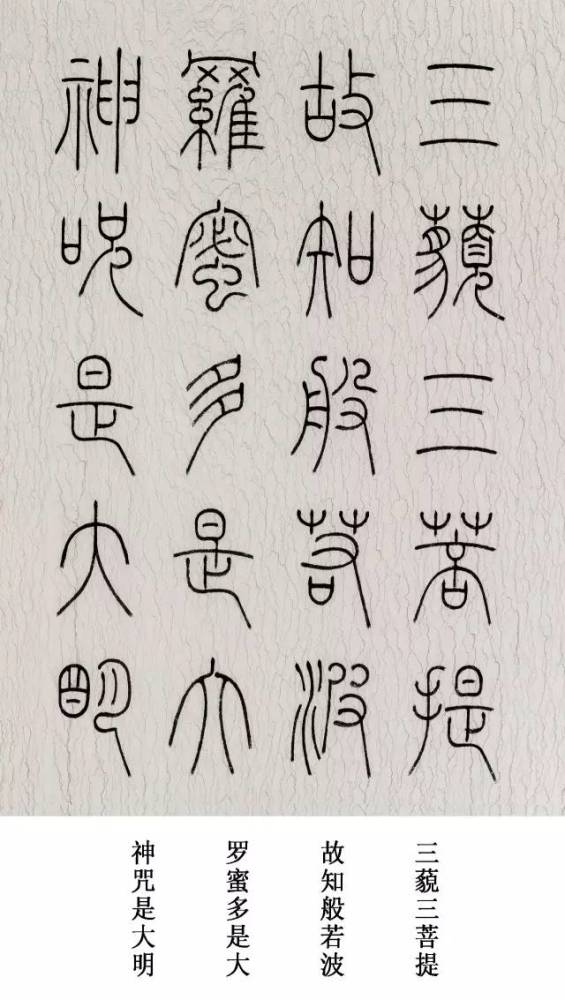 三藐三菩提
故知般若波
羅蜜多是大
神呪是大明
三藐三菩提
故知般若波
罗蜜多是大
神咒是大明